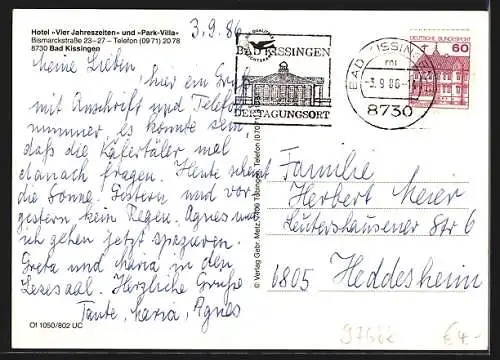 Hotel »Vier Jahreszeiten« und »Park-Villa«
Bismarckstraße 23–27 – Telefon (09 71) 20 78
8730 Bad Kissingen
3.9.86
Meine Lieben, hier ein Gruß
mit Anschrift und Telefon
nummer, es könnte sein,
daß die Käfertäler mal
danach fragen. Heute scheint
die Sonne. Gestern und vor
gestern kein Regen. Agnes und
ich gehen jetzt spazieren.
Greta und Maria in den
Lesesaal. Herzliche Grüße
Tante, Maria, Agnes
Of 1050/802 UC
© Verlag Gebr. Metz, Tübingen, Telefon
BAD KISSINGEN
DER TAGUNGSORT
BAD KISSINGEN
-3.9.86
8730
DEUTSCHE BUNDESPOST
60
Familie
Herbert Meier
Leutershausener Str 6
6805 Heddesheim
€ 4.-